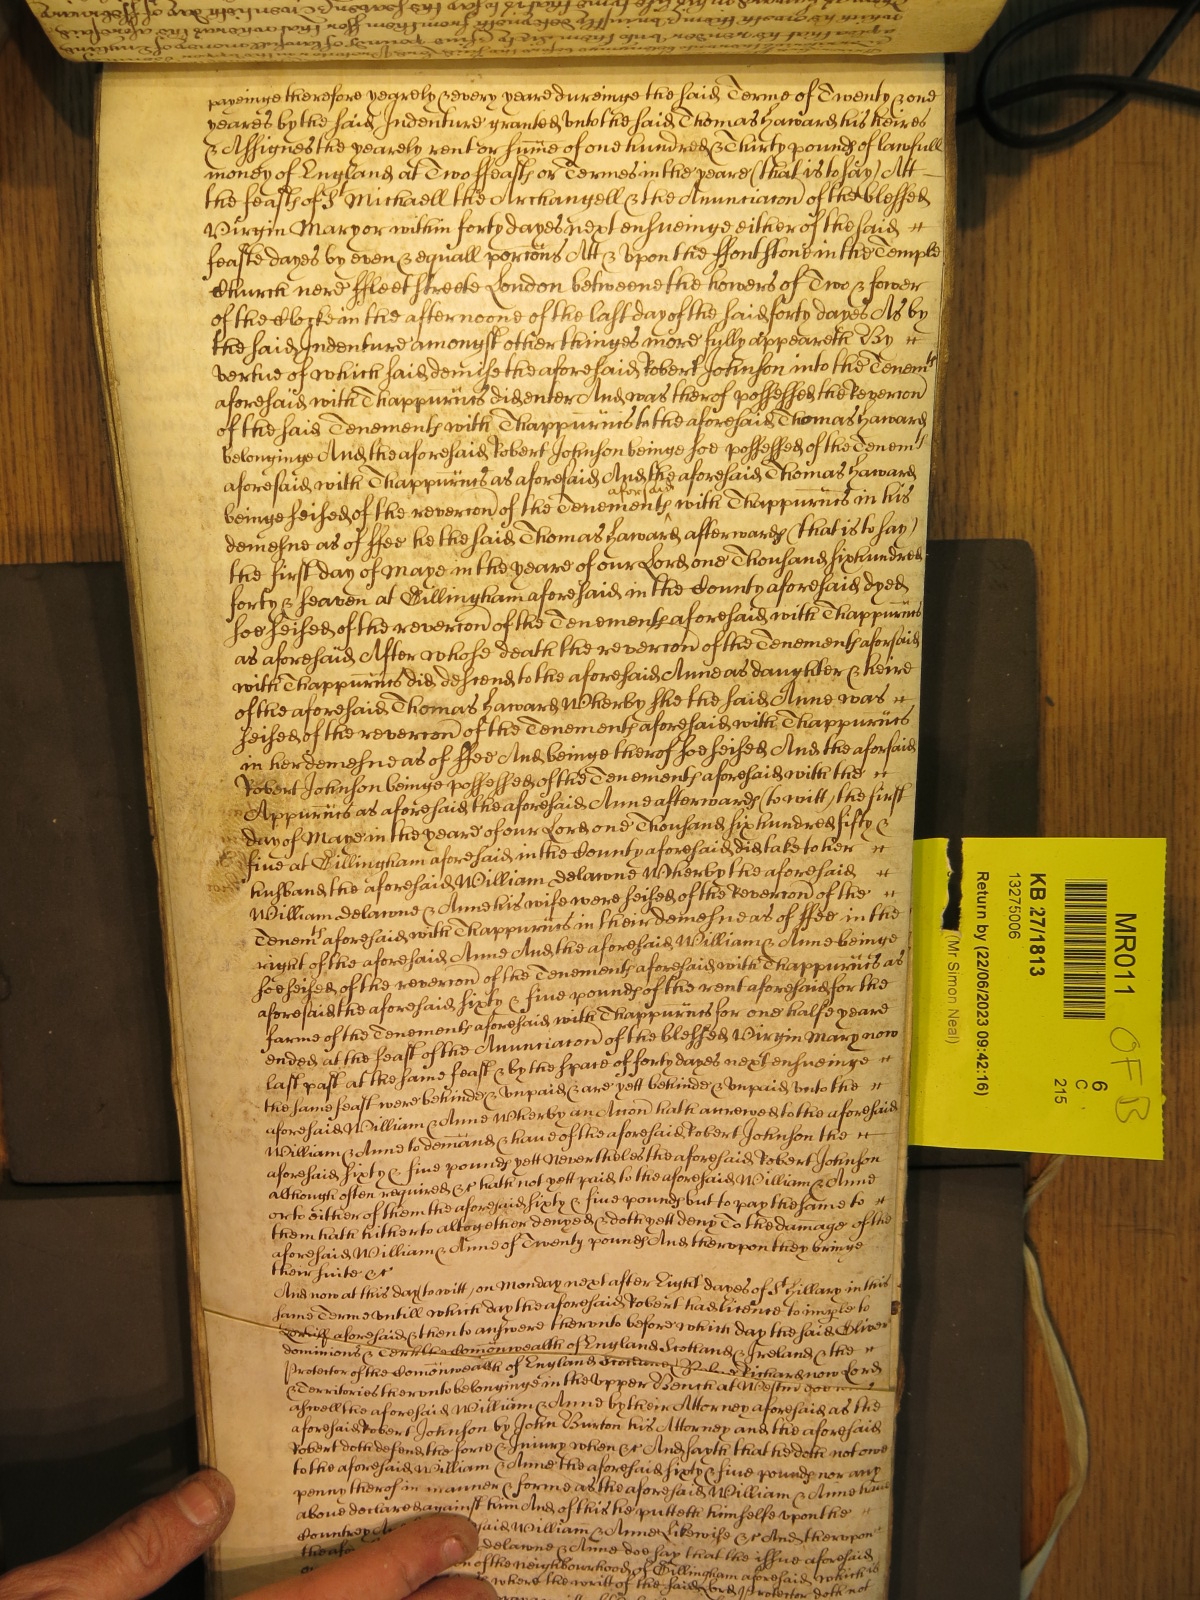 payeinge therefore yearely & every yeare dureinge the said Terme of Twenty & one
yeares by the said Indenture granted unto the said Thomas Haward his heires
& Assignes the yearely rent or sum̄e of one hundred & Thirty pounds of lawfull
money of England at Two ffeasts or Termes in the yeare (that is to say) Att
the feasts of St Michaell the Archangell & the Anunciacōn of the blessed
Virgin Mary or within forty dayes next ensueinge either of the said
feaste dayes by even & equall porcōns Att & vpon the ffont stone in the Temple
Church nere ffleet streete London betweene the howers of Two & fower
of the Clocke in the afternoone of the last day of the said forty dayes As by
the said Indenture amongst other thinges more fully appeareth By
vertue of which said demise the aforesaid Robert Johnson into the Tenemts
aforesaid with Thappurn̄cs did enter And was therof possessed the Revercōn
of the said Tenements with Thappurn̄cs to the aforesaid Thomas Haward
belonginge And the aforesaid Robert Johnson beinge soe possessed of the Tenemts
aforesaid with Thappurn̄cs as aforesaid And the aforesaid Thomas Haward
beinge seised of the revercōn of the Tenements aforesaid with Thappurn̄cs in his
demesne as of ffee he the said Thomas Haward afterwards (that is to say)
the first day of Maye in the yeare of our Lord one Thousand six hundred
forty & seaven at Gillingham aforesaid in the County aforesaid dyed
soe seised of the revercōn of the Tenements aforesaid with Thappurn̄cs
as aforesaid After whose death the revercōn of the Tenements aforsaid
with Thappurn̄cs did descend to the aforesaid Anne as daughter & heire
of the aforesaid Thomas Haward Wherby she the said Anne was
seised of the revercōn of the Tenements aforesaid with Thappurn̄cs
in her demesne as of ffee And beinge therof soe seised And the aforsaid
Robert Johnson beinge possessed of the Tenements aforesaid with the
Appurn̄cs as aforesaid the aforesaid Anne afterwards (to witt) the first
day of Maye in the yeare of our Lord one Thousand six hundred fifty &
five at Gillingham aforesaid in the County aforesaid did take to her
husband the aforesaid William Delawne Wherby the aforesaid
William Delawne & Anne his wife were seised of the Revercōn of the
Tenemts aforesaid with Thappurn̄cs in their demesne as of ffee in the
right of the aforesaid Anne And the aforesaid William & Anne beinge
soe seised of the revercōn of the Tenements aforesaid with Thappurn̄cs as
aforesaid the aforesaid sixty & five pounds of the rent aforesaid for the
farme of the Tenements aforesaid with Thappurn̄cs for one halfe yeare
ended at the feast of the Anunciacōn of the blessed Virgin Mary now
last past at the same feast & by the space of forty dayes next ensueinge
the same feast were behinde & vnpaid & are yett behinde & vnpaid vnto the
aforesaid William & Anne Wherby an Accōn hath accrewed to the aforesaid
William & Anne to demand & have of the aforesaid Robert Johnson the
aforesaid sixty & five pounds yett Nevertheles the aforesaid Robert Johnson
although often required &c hath not yett paid to the aforesaid William & Anne
or to either of them the aforesaid sixty & five pounds but to pay the same to
them hath hitherto altogether denyed & doth yett deny To the dam̄age of the
aforesaid William & Anne of Twenty pounds And thervpon they bringe
their suite &c
And now at this day to witt, on Monday next after Eight dayes of St Hillary in this
same Terme vntill which day the aforesaid Robert had licence to imple to
aforesaid & then to answere thervnto before which day the said Oliver
dominions & Territ the Com̄onwealth of England Scotland & Ireland & the
Protector of the Com̄onwealth of England Scotland Richard now Lord
& Territories thervnto belonginge in the vpper Bench at Westm̄
aswell the aforesaid William & Anne by their Attorney aforesaid as the
aforesaid Robert Johnson by John Burton his Attorney and the aforesaid
Robert doth defend the force & Iniury when &c And sayth that he doth not owe
to the aforesaid William & Anne the aforesaid sixty & five pounds nor any
penny therof in manner & forme as the aforesaid William & Anne have
above declared against him And of this he putteth himselfe vpon the
Countrey And said William & Anne Likewise &c And thervpon
the afo delawne & Anne doe say that the issue aforesaid
of the neighbourhood of Gillingham aforesaid which is
where the writt of the said Lord Protector doth not
MR011
KB 27/1813
13275006
Return by (22/06/2023 09:42:16)
(Mr Simon Neal)
6
C
215
OFB